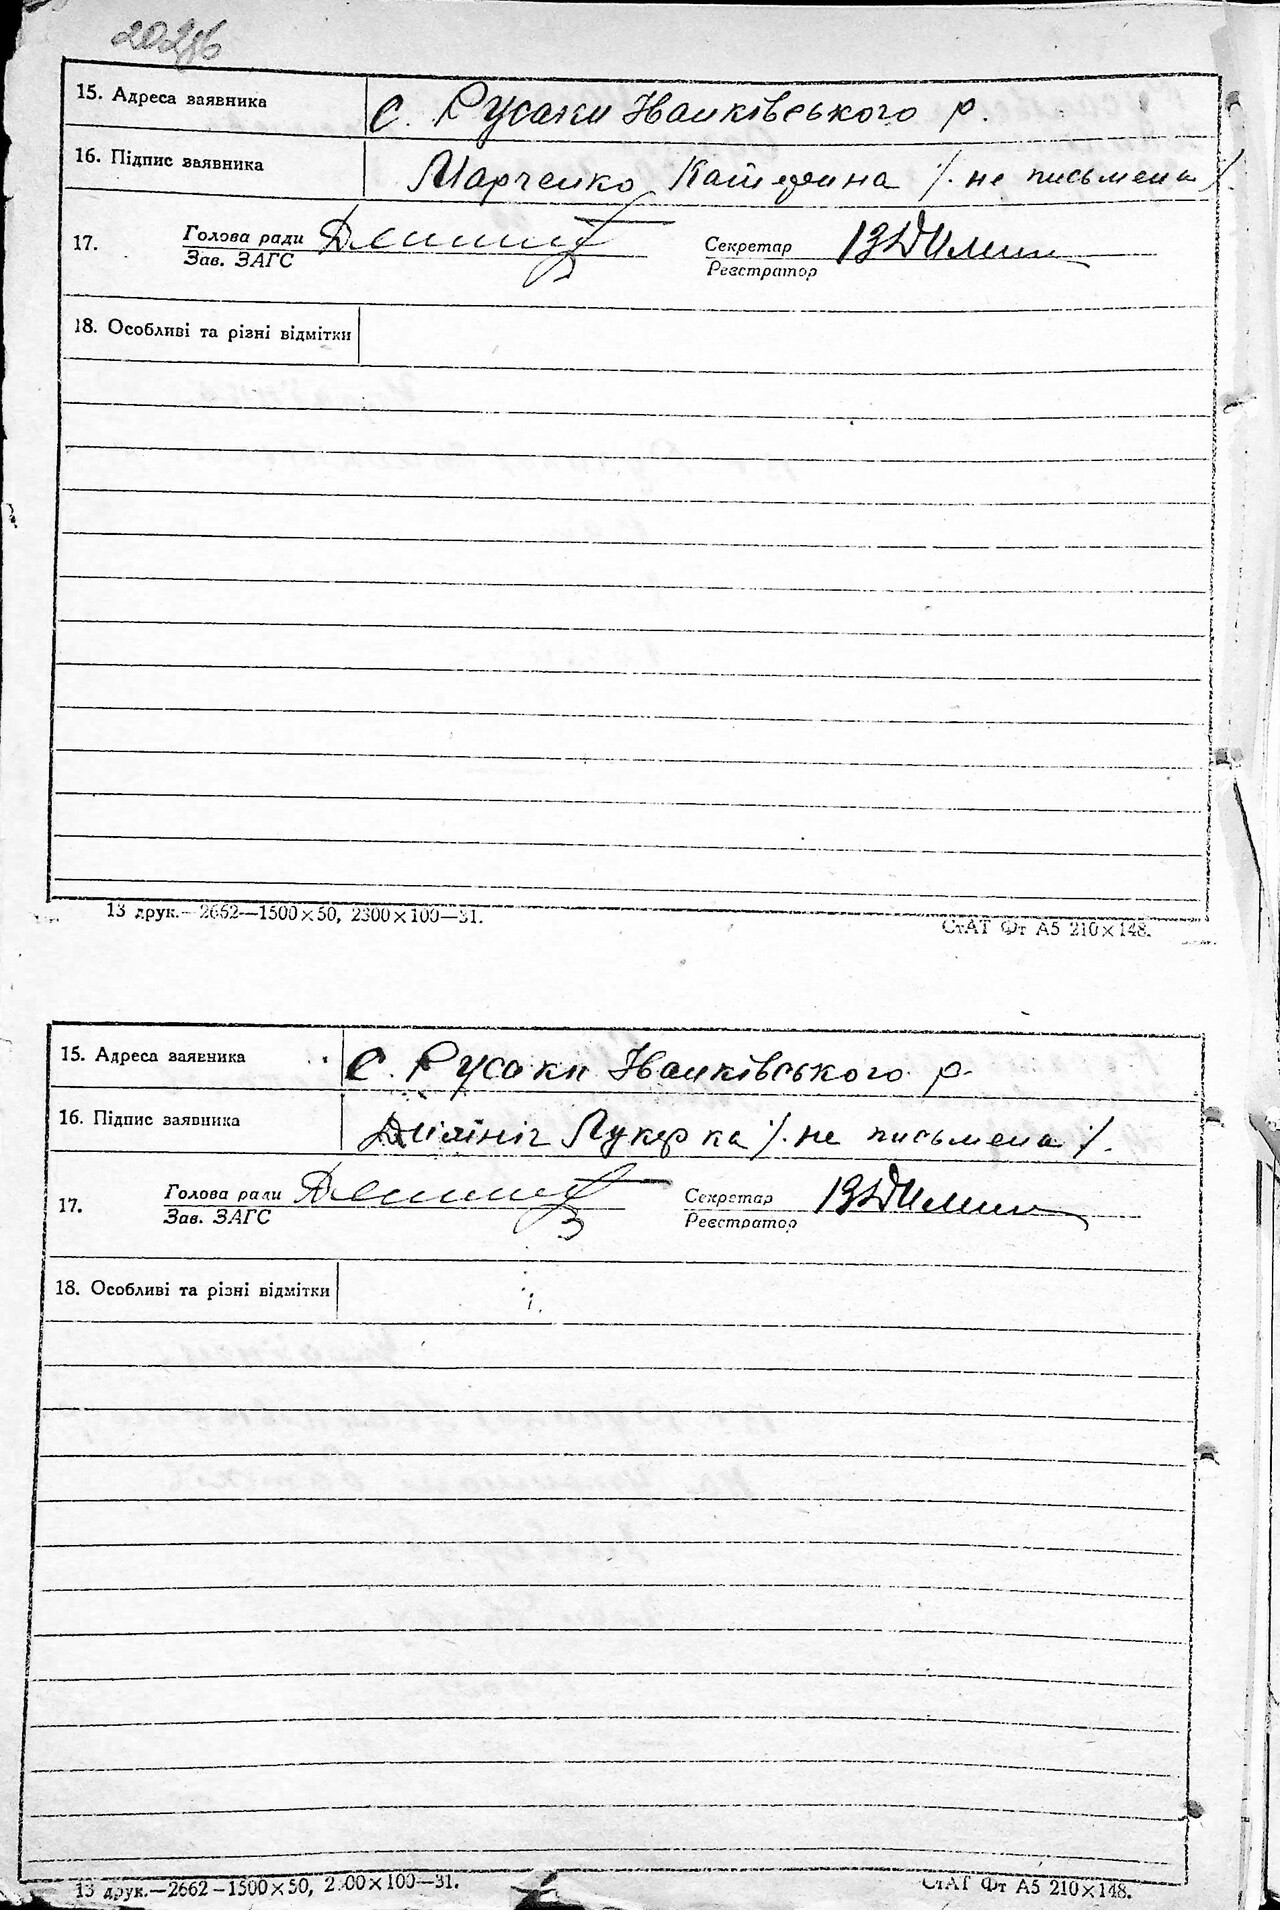 15. Адреса заявника с. Русаки Іванківського р.
16. Підпис заявника Марченко Катерина /. не письмена /.
17. Голова ради Секретар
Зав. ЗАГС Реєстратор
18. Особливі та різні відмітки
13 друк.—2662—1500×50, 2300×100—31.
СтАТ Фт А5 210×148.
15. Адреса заявника с. Русаки Іванківського р.
16. Підпис заявника Лукерка /. не письмена /.
17. Голова ради Секретар
Зав. ЗАГС Реєстратор
18. Особливі та різні відмітки
13 друк.—2662—1500×50, 2300×100—31.
СтАТ Фт А5 210×148.